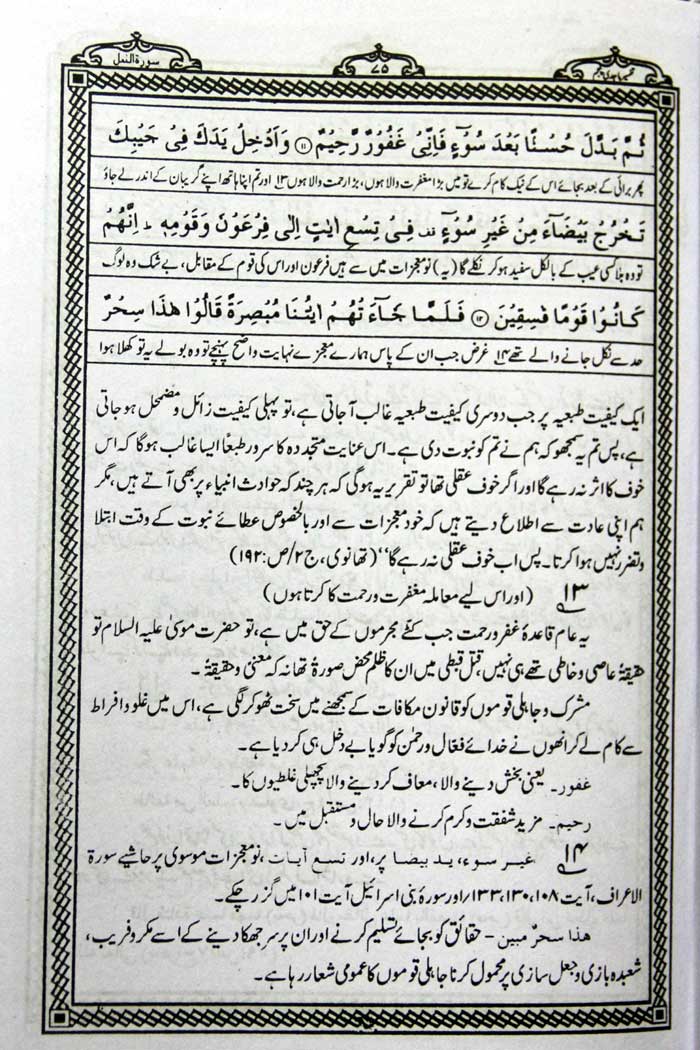 تفسیر ماجدی پنجم
٧٥
سورة النمل
ثُمَّ بَدَّلَ حُسْنًا بَعْدَ سُوْٓءٍ فَاِنِّیْ غَفُوْرٌ رَّحِیْمٌ ﴿۱۱﴾ وَاَدْخِلْ یَدَكَ فِیْ جَیْبِكَ
پھر برائی کے بعد بجائے اس کے نیک کام کرے تو میں بڑا مغفرت والا ہوں، بڑا رحمت والا ہوں ۱۳ اور تم اپنا ہاتھ اپنے گریبان کے اندر لے جاؤ
تَخْرُجْ بَیْضَآءَ مِنْ غَیْرِ سُوْٓءٍ فِیْ تِسْعِ اٰیٰتٍ اِلٰی فِرْعَوْنَ وَقَوْمِهٖ ؕ اِنَّهُمْ
تو وہ بلا کسی عیب کے بالکل سفید ہو کر نکلے گا (یہ) نو معجزات میں سے ہیں فرعون اور اس کی قوم کے مقابل، بے شک وہ لوگ
كَانُوْا قَوْمًا فٰسِقِیْنَ ﴿۱۲﴾ فَلَمَّا جَآءَتْهُمْ اٰیٰتُنَا مُبْصِرَةً قَالُوْا هٰذَا سِحْرٌ
حد سے نکل جانے والے تھے ۱۴ غرض جب ان کے پاس ہمارے معجزے نہایت واضح پہنچے تو وہ بولے یہ تو کھلا ہوا
ایک کیفیت طبعیہ پر جب دوسری کیفیت طبعیہ غالب آجاتی ہے، تو پہلی کیفیت زائل و مضمحل ہو جاتی
ہے، پس تم یہ سمجھو کہ ہم نے تم کو نبوت دی ہے۔ اس عنایت متجددہ کا سرور طبعًا ایسا غالب ہوگا کہ اس
خوف کا اثر نہ رہے گا اور اگر خوف عقلی تھا تو تقریر یہ ہوگی کہ ہر چند کہ حوادث انبیاء پر بھی آتے ہیں، مگر
ہم اپنی عادت سے اطلاع دیتے ہیں کہ خود معجزات سے اور بالخصوص عطائے نبوت کے وقت ابتلا
و تضرر نہیں ہوا کرتا۔ پس اب خوف عقلی نہ رہے گا‘‘ (تھانوی، ج ۲/ص: ۱۹۲)
۱۳ (اور اس لیے معاملہ مغفرت و رحمت کا کرتا ہوں)
یہ عام قاعدۂ غفر و رحمت جب کٹے مجرموں کے حق میں ہے، تو حضرت موسیٰ علیہ السلام تو
حقیقۃً عاصی و خاطی تھے ہی نہیں، قتل قبطی میں ان کا ظلم محض صورۃً تھا نہ کہ معنیً و حقیقۃً۔
مشرک و جاہلی قوموں کو قانون مکافات کے سمجھنے میں سخت ٹھوکر لگی ہے، اس میں غلو و افراط
سے کام لے کر انھوں نے خدائے فعّال و رحمٰن کو گویا بے دخل ہی کر دیا ہے۔
غفور۔ یعنی بخش دینے والا، معاف کر دینے والا پچھلی غلطیوں کا۔
رحیم۔ مزید شفقت و کرم کرنے والا حال و مستقبل میں۔
۱۴ غیر سوء، ید بیضا پر، اور تسع آیات، نو معجزات موسوی پر حاشیے سورۃ
الاعراف، آیت ۱۰۸، ۱۳۰، ۱۳۳/ اور سورۂ بنی اسرائیل آیت ۱۰۱ میں گزر چکے۔
هذا سحر مبین - حقائق کو بجائے تسلیم کرنے اور ان پر سر جھکا دینے کے اسے مکر و فریب،
شعبدہ بازی و جعل سازی پر محمول کرنا جاہلی قوموں کا عمومی شعار رہا ہے۔